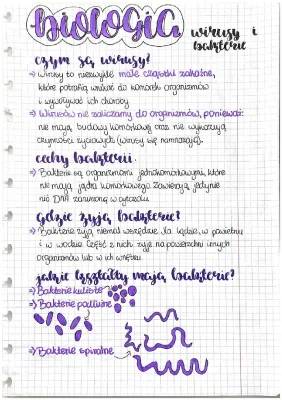 biologia
wirusy i
bakterie
czym są wirusy?
⇒ Wirusy to niezwykle małe cząstki zakaźne,
które potrafią wnikać do komórek organizmów
i wywoływać ich choroby
⇒ Wirusów nie zaliczamy do organizmów, ponieważ:
nie mają budowy komórkowej oraz nie wykazują
czynności życiowych (wirusy się namnażają).
cechy bakterii
⇒ Bakterie są organizmami jednokomórkowymi, które
nie mają jądra komórkowego. Zawierają jedynie
nić DNA zanurzoną w cytozolu.
gdzie żyją bakterie?
⇒ Bakterie żyją niemal wszędzie. Na lądzie, w powietrzu
i w wodzie. Część z nich żyje na powierzchni innych
organizmów lub w ich wnętrzu.
jakie kształty mają bakterie?
⇒ Bakterie kuliste
⇒ Bakterie
⇒ Bakterie spiralne